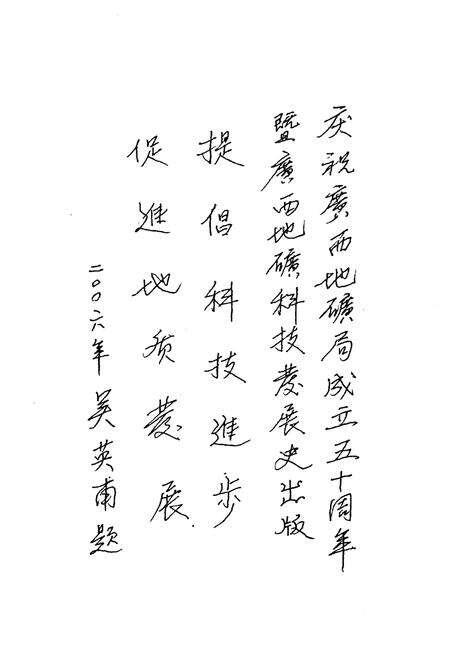 庆祝廣西地礦局成立五十周年
暨廣西地礦科技发展史出版
提倡科技進步
促進地质发展
二〇〇六年 吴英甫题